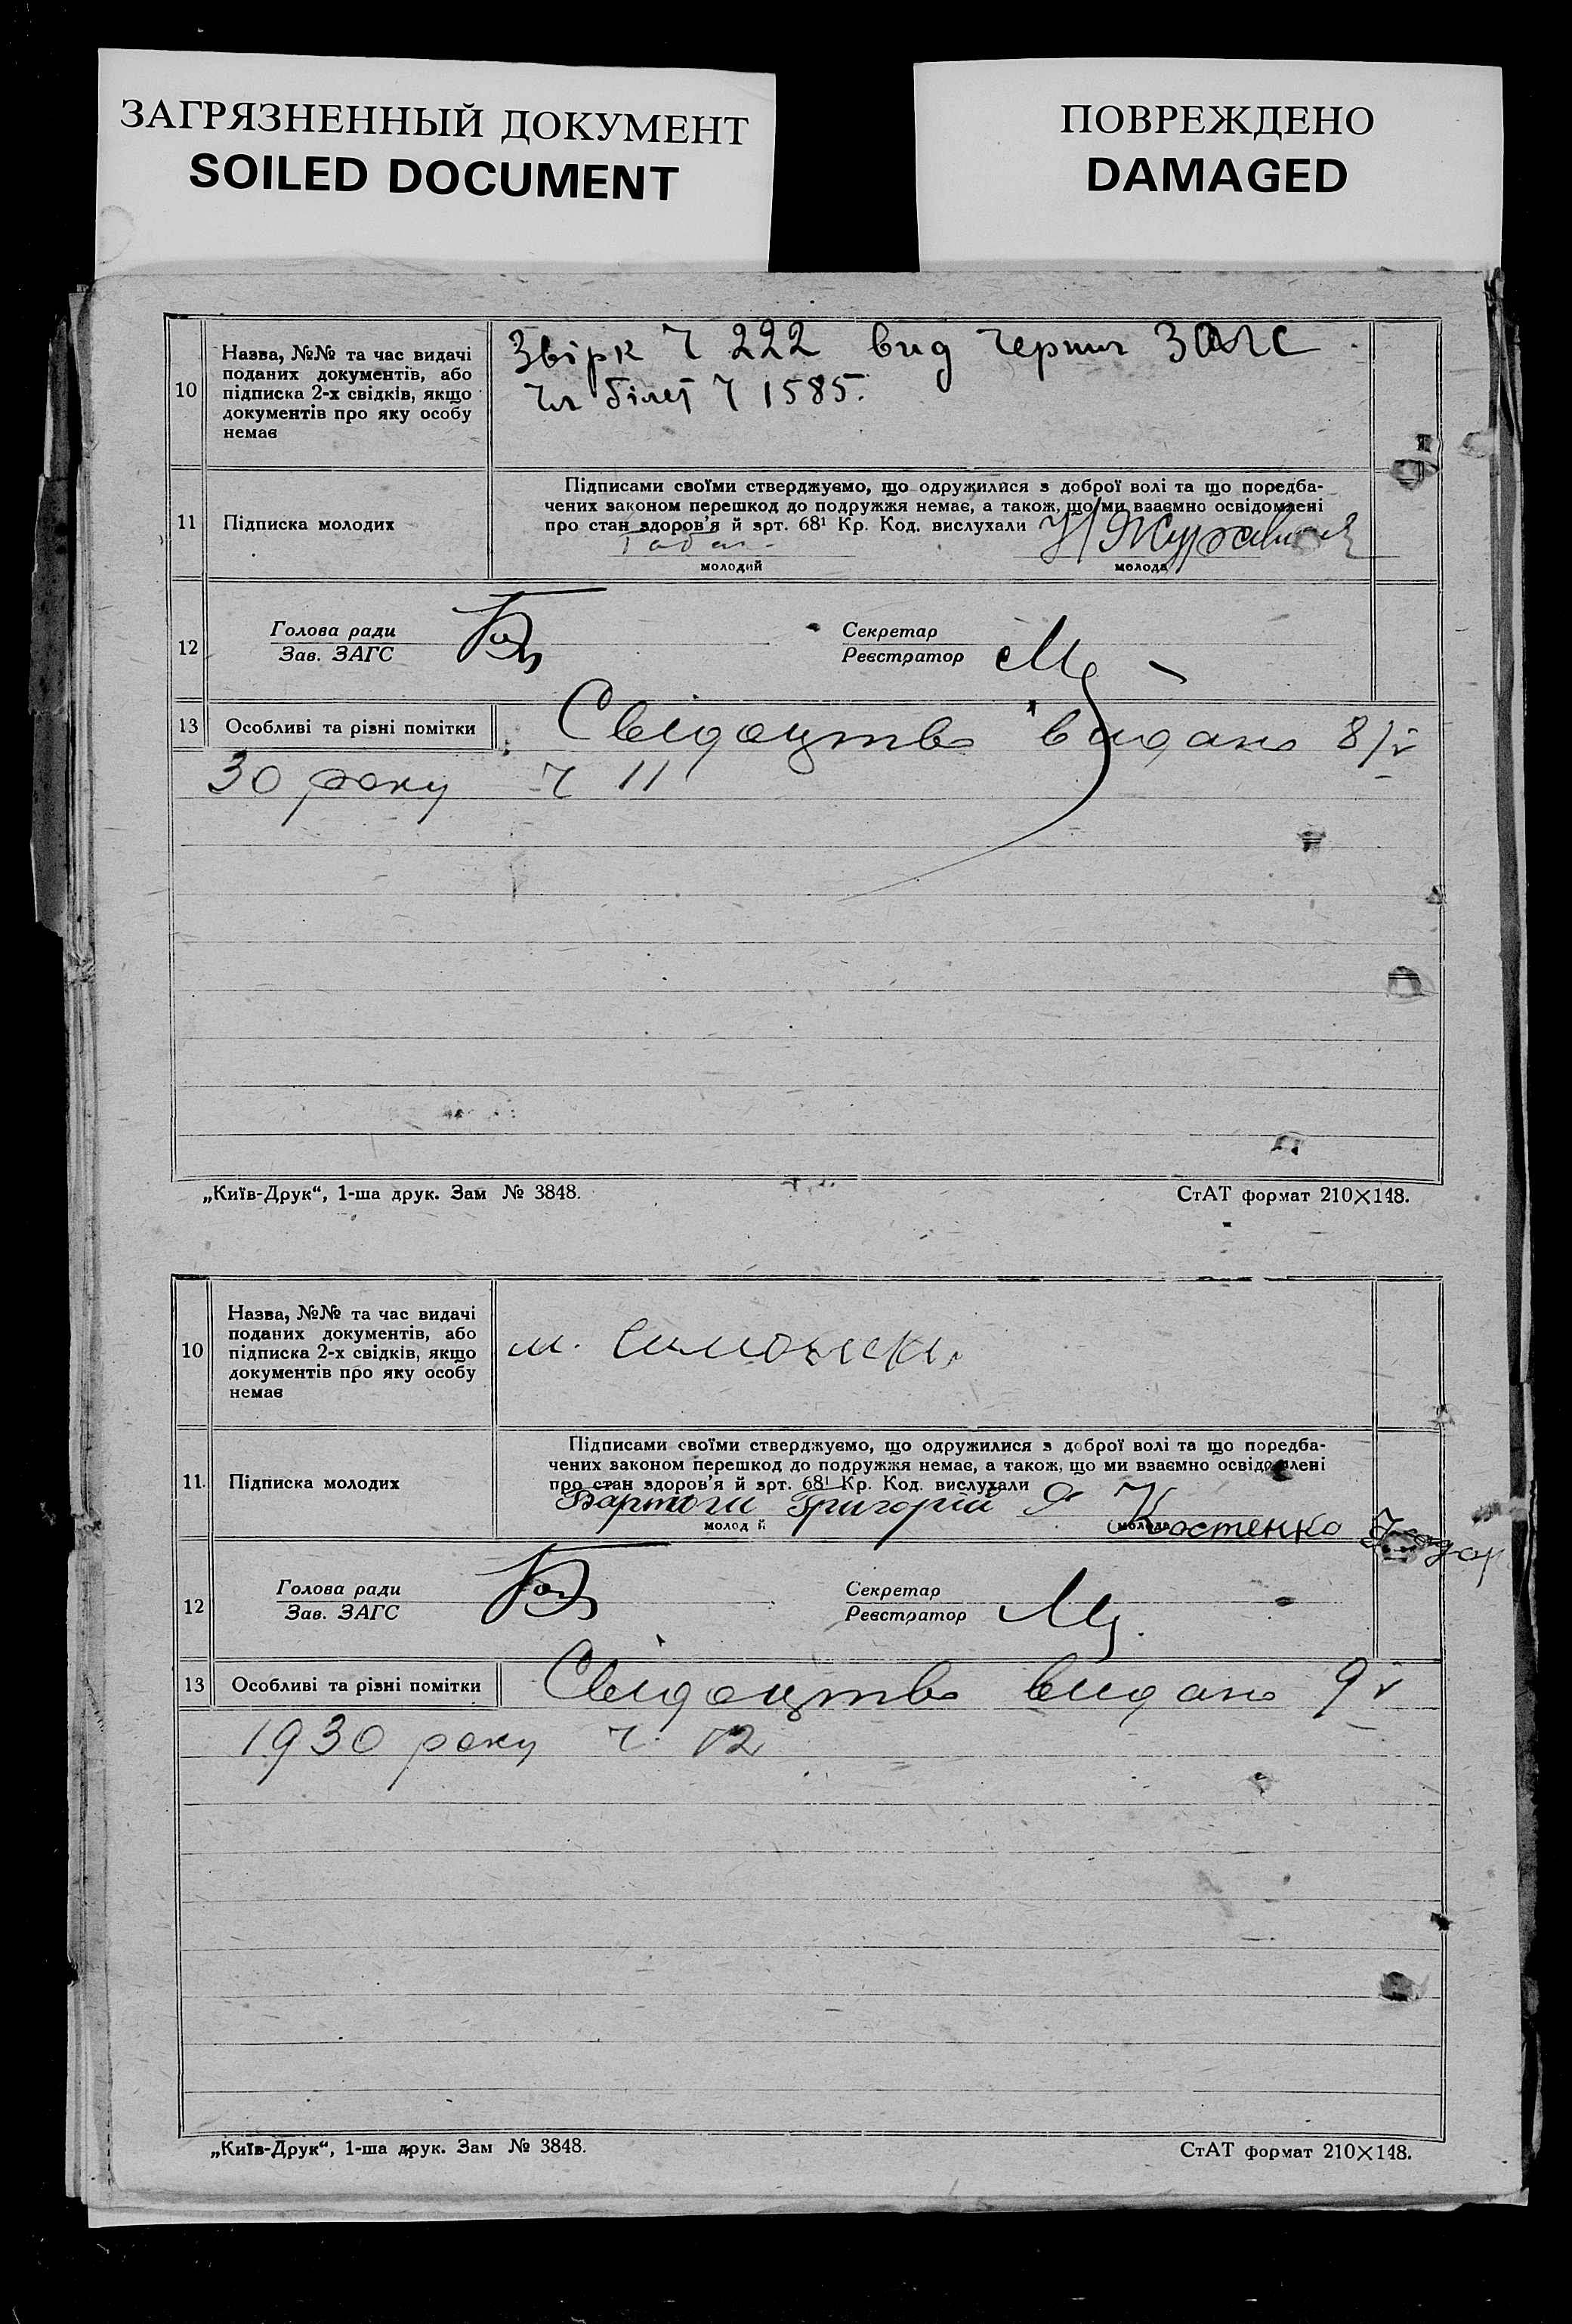 ЗАГРЯЗНЕННЫЙ ДОКУМЕНТ
SOILED DOCUMENT
ПОВРЕЖДЕНО
DAMAGED
10
Назва, №№ та час видачі
поданих документів, або
підписка 2-х свідків, якщо
документів про яку особу
немає
Ч 222 вид ЗАГС
білет Ч 1585.
11
Підписка молодих
Підписами своїми стверджуємо, що одружилися з доброї волі та що поредба-
чених законом перешкод до подружжя немає, а також, що ми взаємно освідомлені
про стан здоров'я й арт. 68¹ Кр. Код. вислухали
молодий
молода
12
Голова ради
Зав. ЗАГС
Секретар
Реєстратор
13
Особливі та різні помітки
Свідоцтво видано 8/V
30 року ч 11
„Київ-Друк“, 1-ша друк. Зам № 3848.
СтАТ формат 210×148.
10
Назва, №№ та час видачі
поданих документів, або
підписка 2-х свідків, якщо
документів про яку особу
немає
м.
11.
Підписка молодих
Підписами своїми стверджуємо, що одружилися з доброї волі та що поредба-
чених законом перешкод до подружжя немає, а також, що ми взаємно освідомлені
про стан здоров'я й арт. 68¹ Кр. Код. вислухали
Григорій
Костенко
молод й
молода
12
Голова ради
Зав. ЗАГС
Секретар
Реєстратор
13
Особливі та різні помітки
Свідоцтво видано 9 V
1930 року ч. 12
„Київ-Друк“, 1-ша друк. Зам № 3848.
СтАТ формат 210×148.